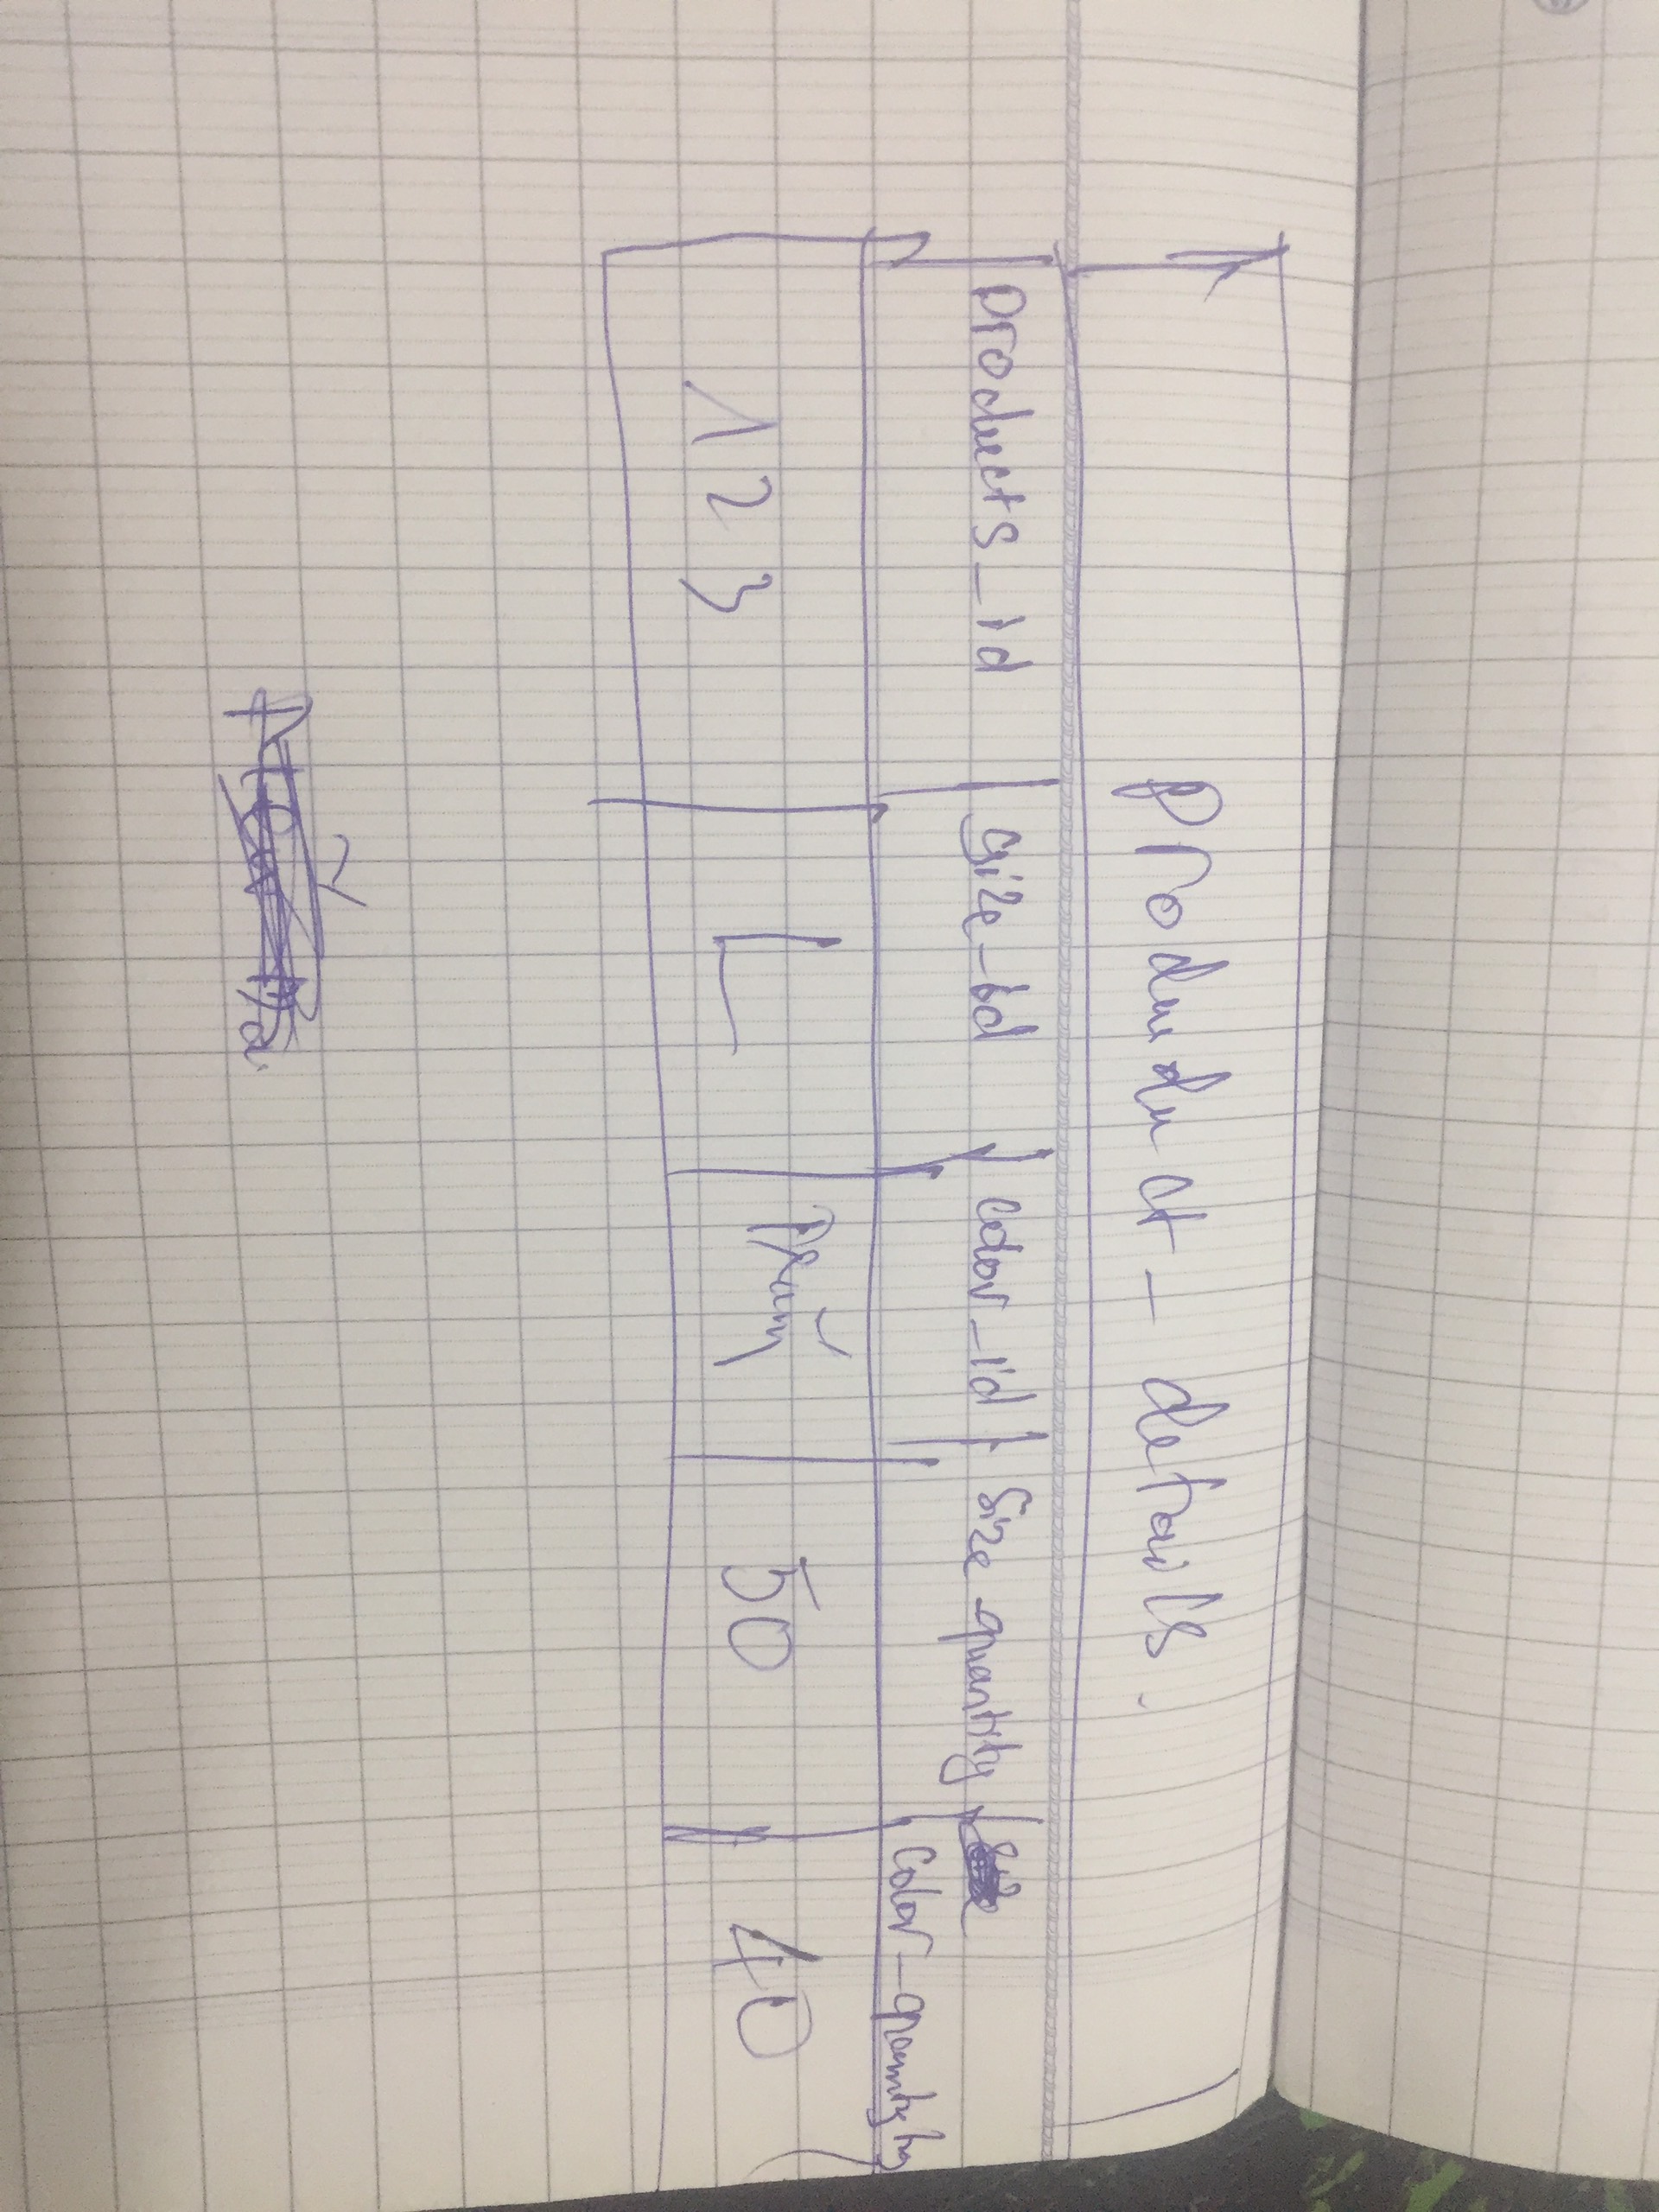 Produduct - details.
products_id size_id color_id size quantity
color-quantity
123 L 50 40